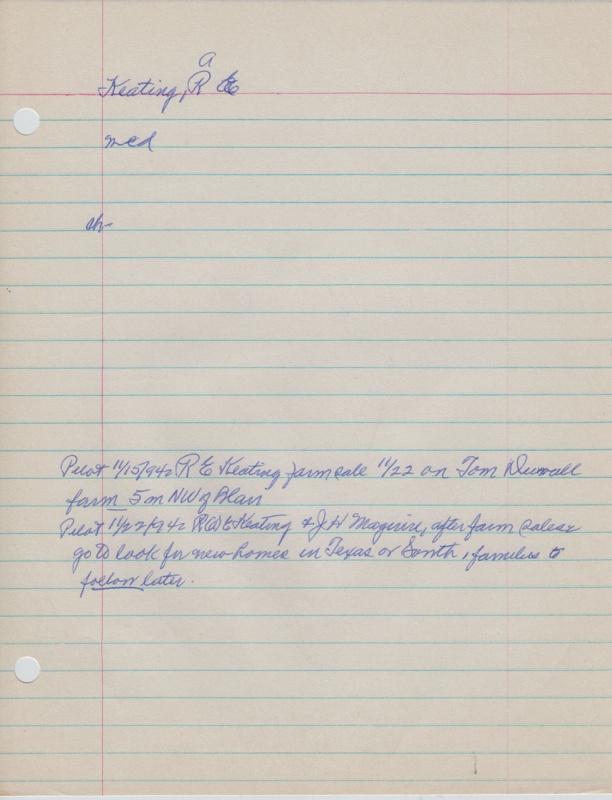 a
Keating, R E
med
ch-
Pilot 11/15/942 R E Keating farm sale 11/22 on Tom Duvall
farm 5 m NW of Blair
Pilot 11/22/942 R(a) E Keating & J H Maguire, after farm sales
go to look for new homes in Texas or South, families to
follow later.